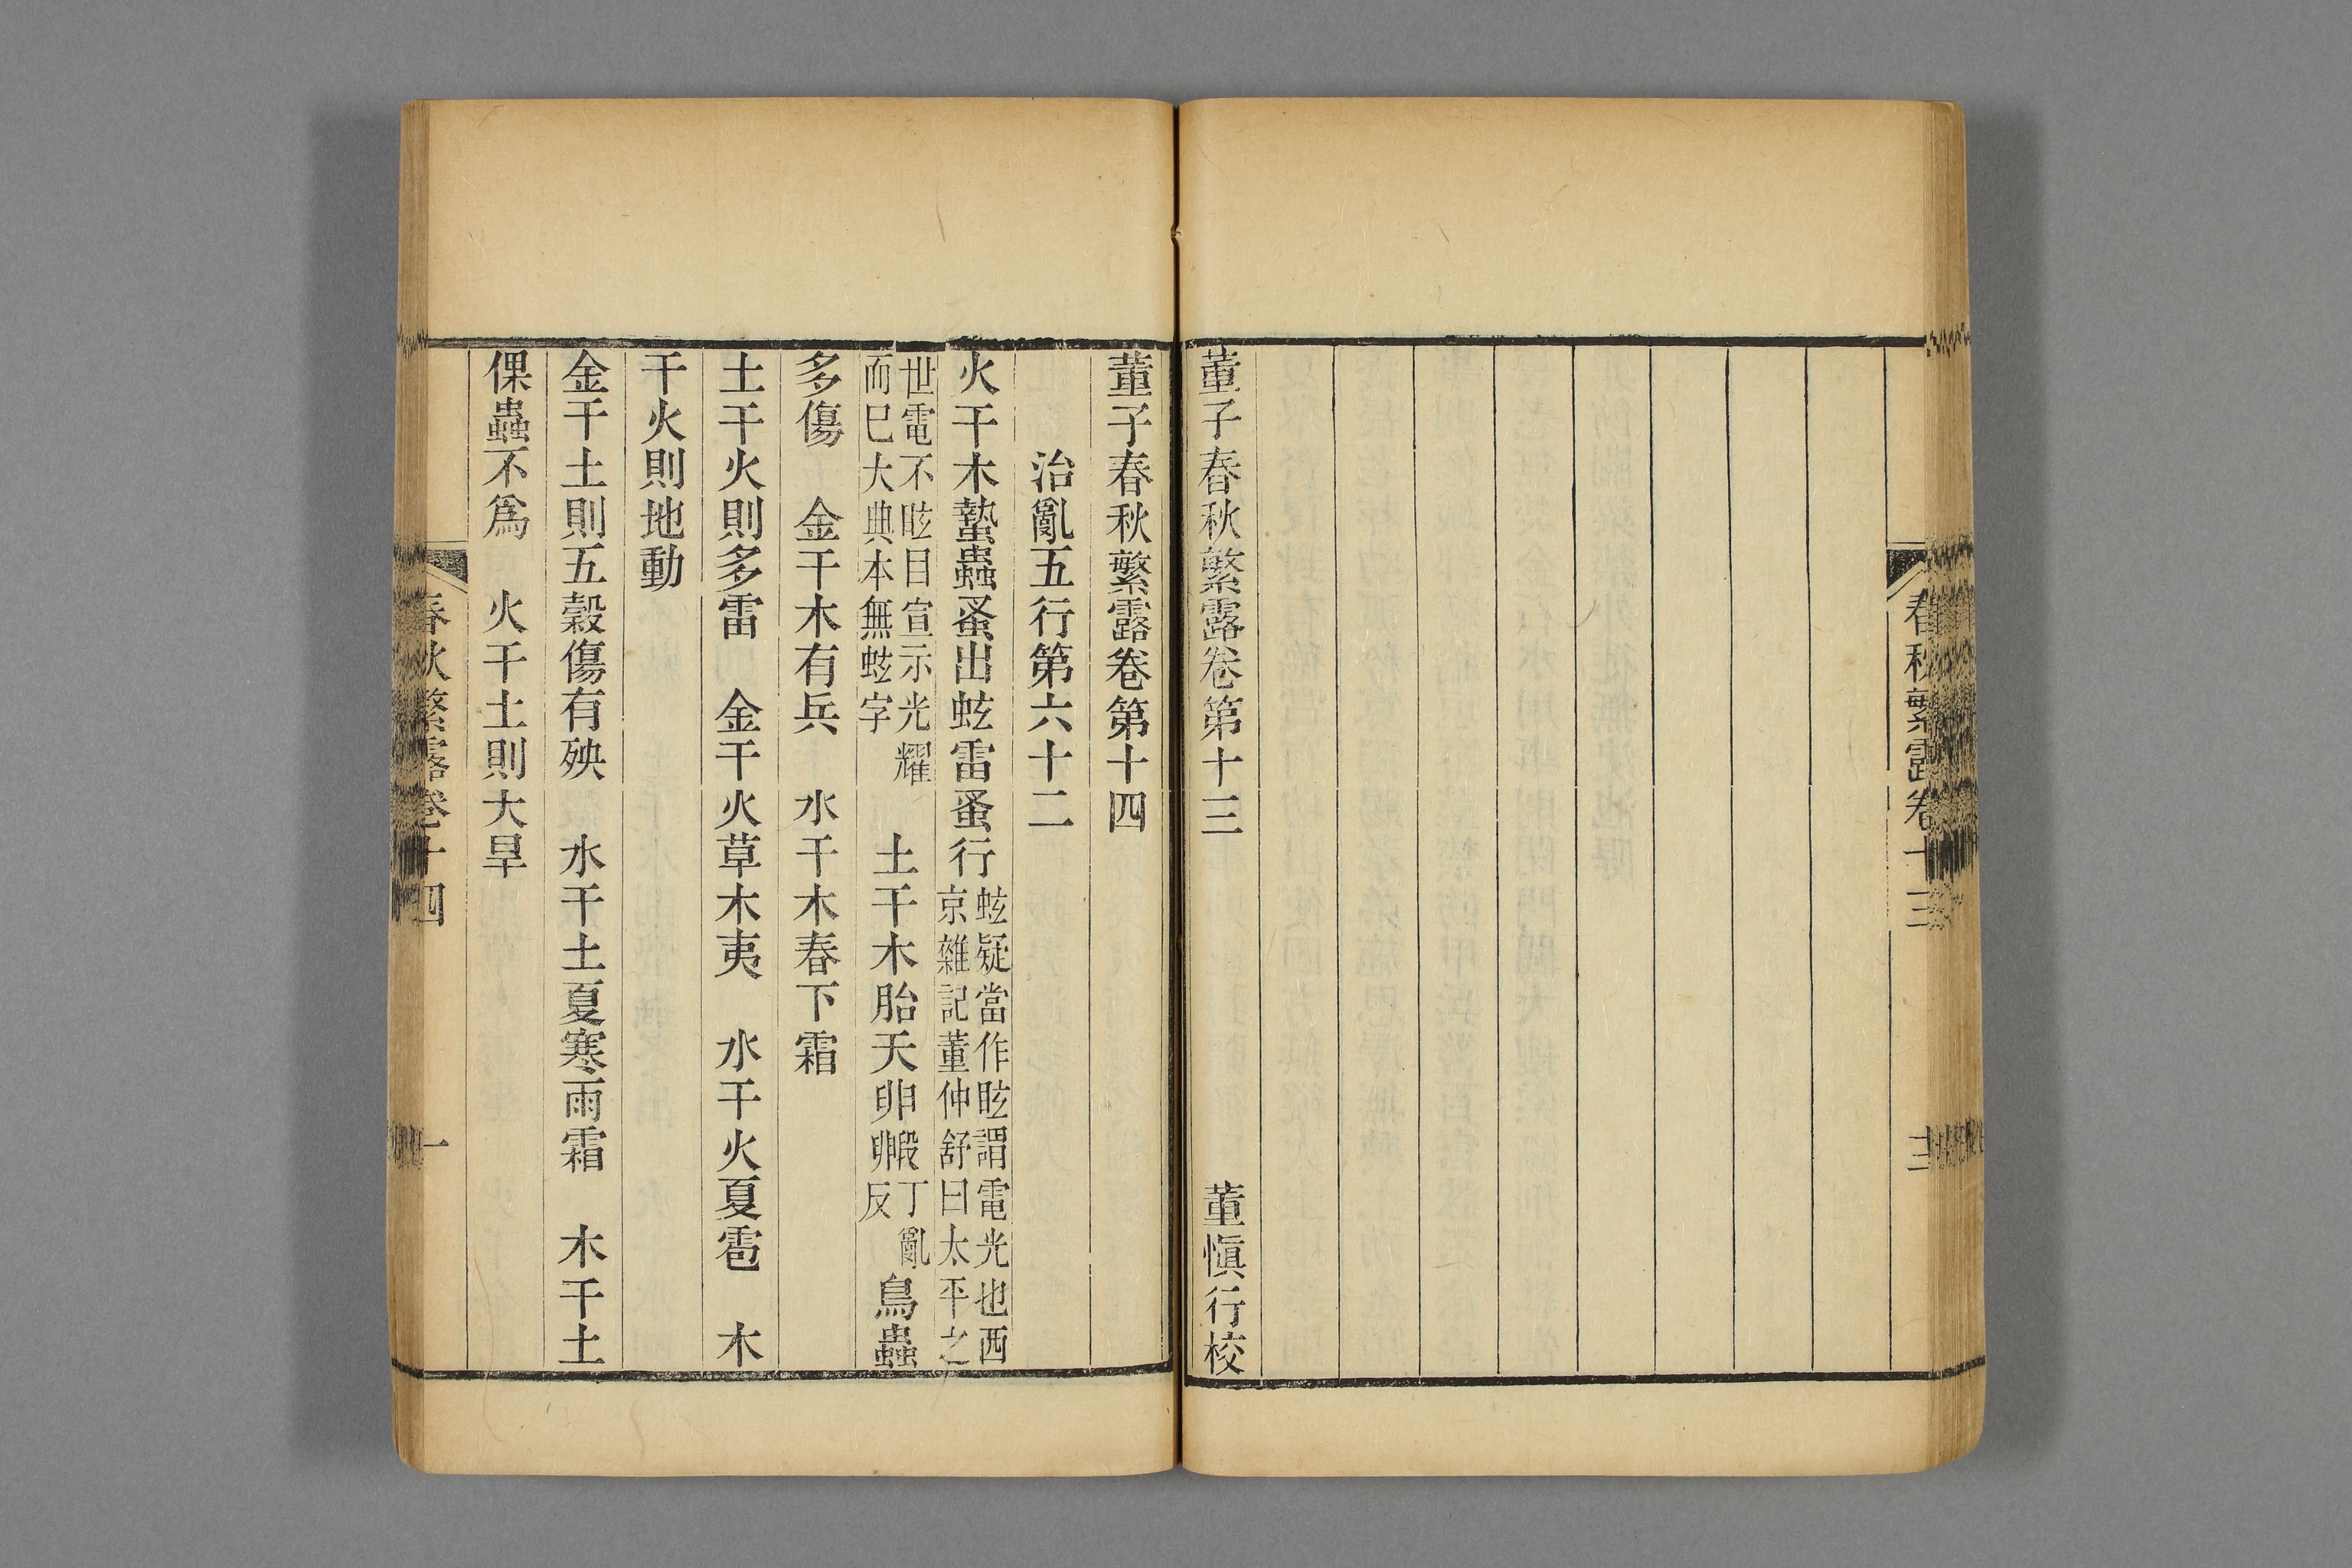 春秋繁露卷十三
董子春秋繁露卷第十三　董愼行校
董子春秋繁露卷第十四
治亂五行第六十二
火干木蟄蟲蚤出蚿雷蚤行
蚿疑當作眩謂電光也西
京雜記董仲舒曰太平之
世電不眩目宣示光耀
而巳大典本無蚿字
土干木胎天卵毈
丁亂
反
鳥蟲
多傷　金干木有兵　水干木春下霜
土干火則多雷　金干火草木夷　水干火夏雹　木
干火則地動
金干土則五穀傷有殃　水干土夏寒雨霜　木干土
倮蟲不爲　火干土則大旱
春秋繁露卷十四　一